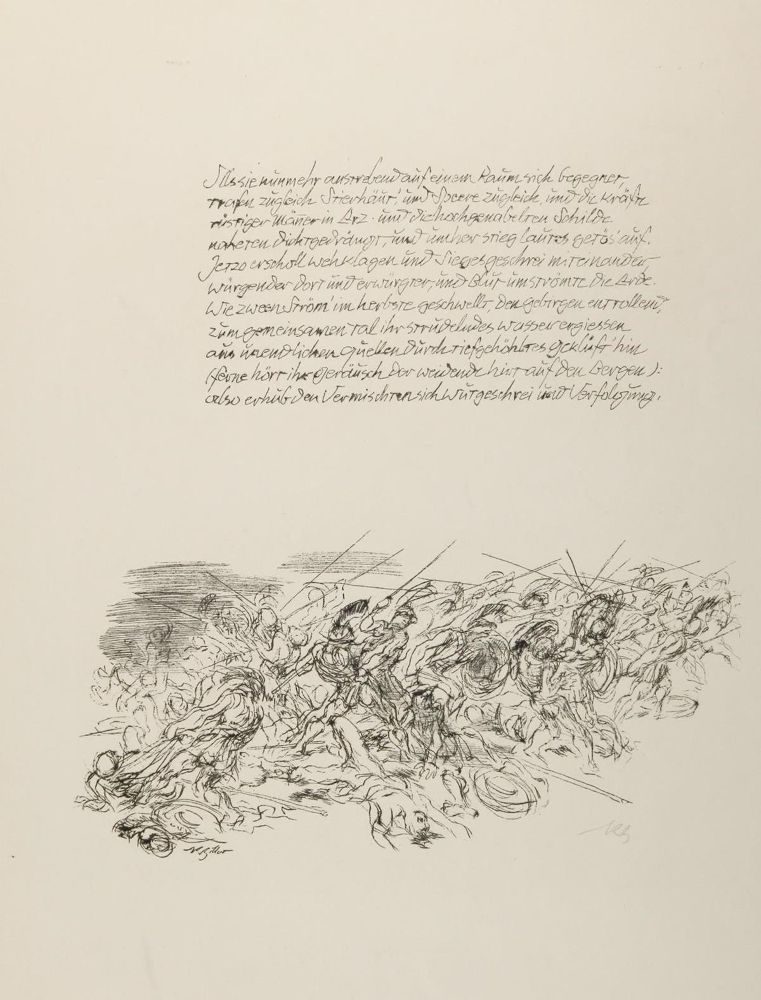 Als sie nunmehr anstrebend auf einem Raum sich begegnet,
trafen zugleich Stierhäut' und Speere zugleich, und die Kräfte
rüstiger Männer in Erz. und die hochgenabelten Schilde
naheten dichtgedrängt, und umher stieg lautes Getös' auf.
Jetzo erscholl Wehklagen und Siegesgeschrei miteinander,
würgender dort und erwürgter, und Blut umströmte die Erde.
Wie zween Ström' im herbste geschwellt, den gebirgen entrollend,
zum gemeinsamen tal ihr strudelndes wasser ergiessen
aus unendlichen Quellen durch tiefgehöhltes geklüft hin
(ferne hört ihr geräusch der weidende hirt auf den Bergen):
also erhub den Vermischten sich wutgeschrei und Verfolgung.